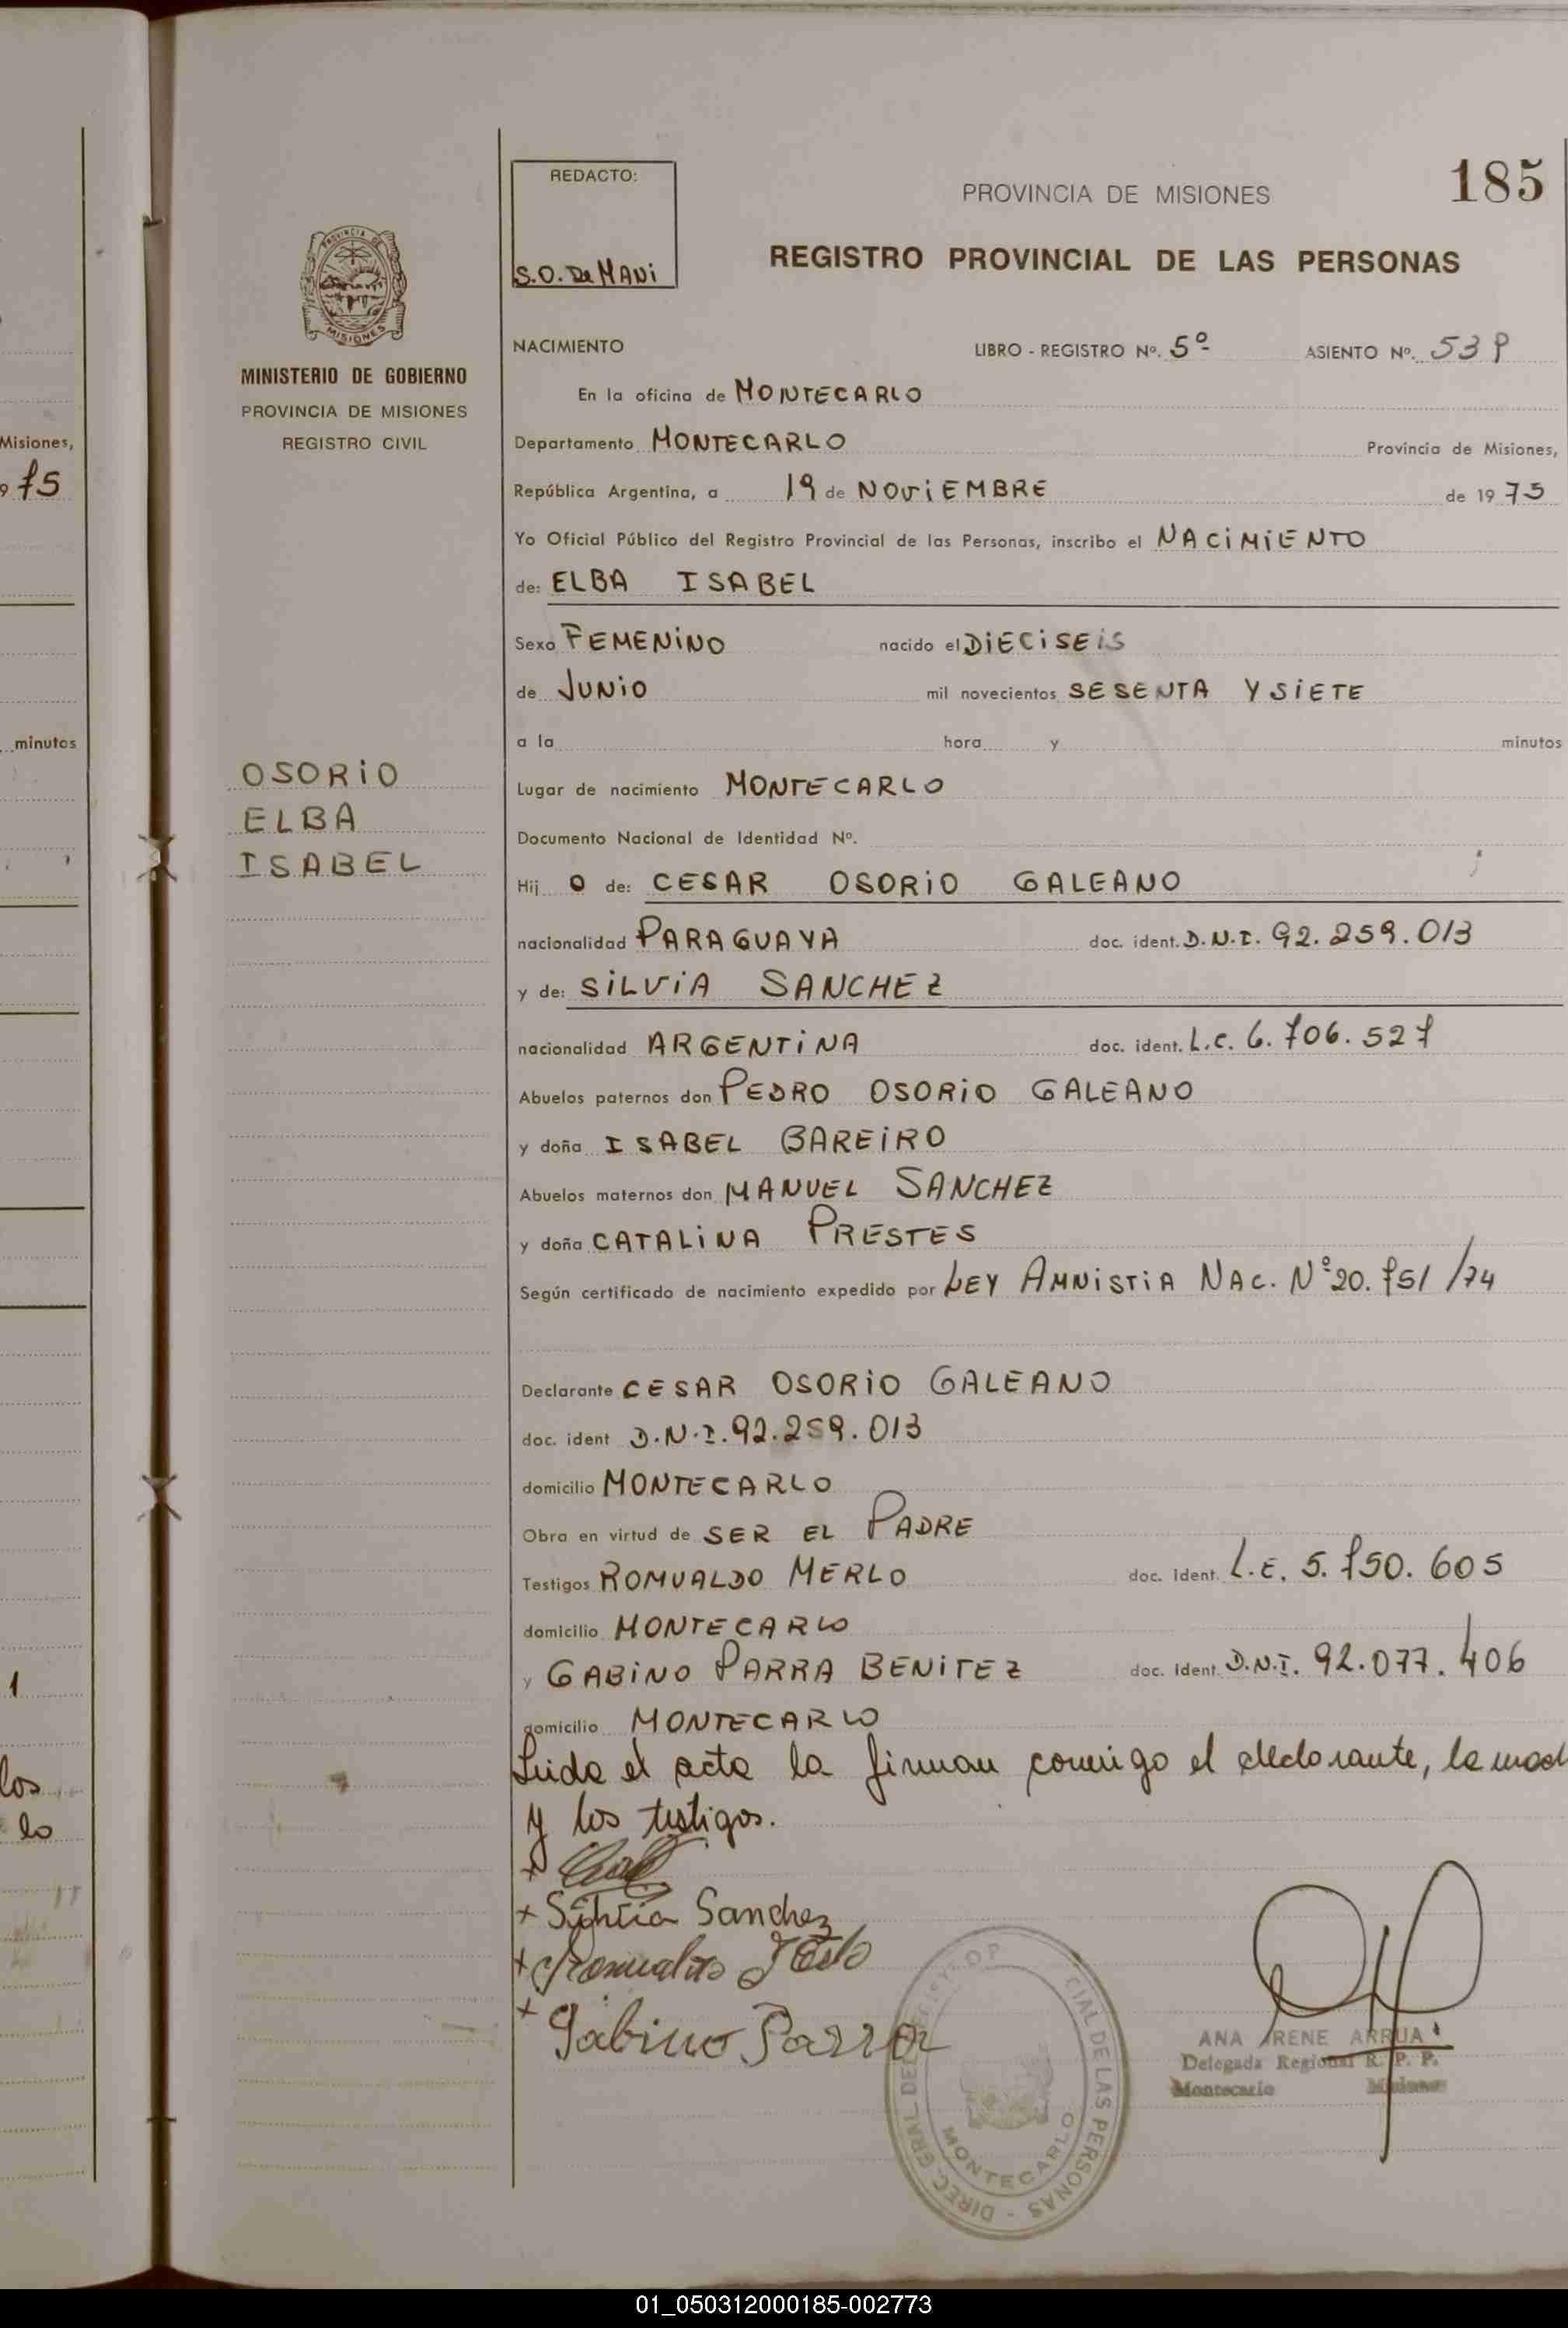 Misiones,
9 75
minutos
1
los
lo
REDACTO:
S.O. De MANI
PROVINCIA DE MISIONES
185
REGISTRO PROVINCIAL DE LAS PERSONAS
PROVINCIA DE
MISIONES
MINISTERIO DE GOBIERNO
PROVINCIA DE MISIONES
REGISTRO CIVIL
OSORIO
ELBA
ISABEL
NACIMIENTO LIBRO - REGISTRO Nº. 5º ASIENTO Nº.
En la oficina de MONTECARLO
Departamento MONTECARLO Provincia de Misiones,
República Argentina, a 19 de NOVIEMBRE de 19 75
Yo Oficial Público del Registro Provincial de las Personas, inscribo el NACIMIENTO
de: ELBA ISABEL
Sexo FEMENINO nacido el DIECISEIS
de JUNIO mil novecientos SESENTA Y SIETE
a la hora y minutos
Lugar de nacimiento MONTECARLO
Documento Nacional de Identidad Nº.
Hij o de: CESAR OSORIO GALEANO
nacionalidad PARAGUAYA doc. ident. D.N.I. 92.259.013
y de: SILVIA SANCHEZ
nacionalidad ARGENTINA doc. ident. L.C. 6.706.527
Abuelos paternos don PEDRO OSORIO GALEANO
y doña ISABEL BAREIRO
Abuelos maternos don MANUEL SANCHEZ
y doña CATALINA PRESTES
Según certificado de nacimiento expedido por LEY AMNISTIA NAC. Nº 20.751/74
Declarante CESAR OSORIO GALEANO
doc. ident D.N.I. 92.259.013
domicilio MONTECARLO
Obra en virtud de SER EL PADRE
Testigos ROMUALDO MERLO doc. ident. L.E. 5.750.605
domicilio MONTECARLO
y GABINO PARRA BENITEZ doc. ident. D.N.I. 92.077.406
domicilio MONTECARLO
Leida el acta la firman conmigo el declarante, la mad
y los testigos.
+
+ Silvia Sanchez
+ Romualdo
+ Gabino Parra
DIREC. GRAL DEL CIAL DE LAS PERSONAS -
MONTECARLO
ANA IRENE ARRUA
Delegada Regional R. P. P.
Montecarlo Misiones
01_050312000185-002773